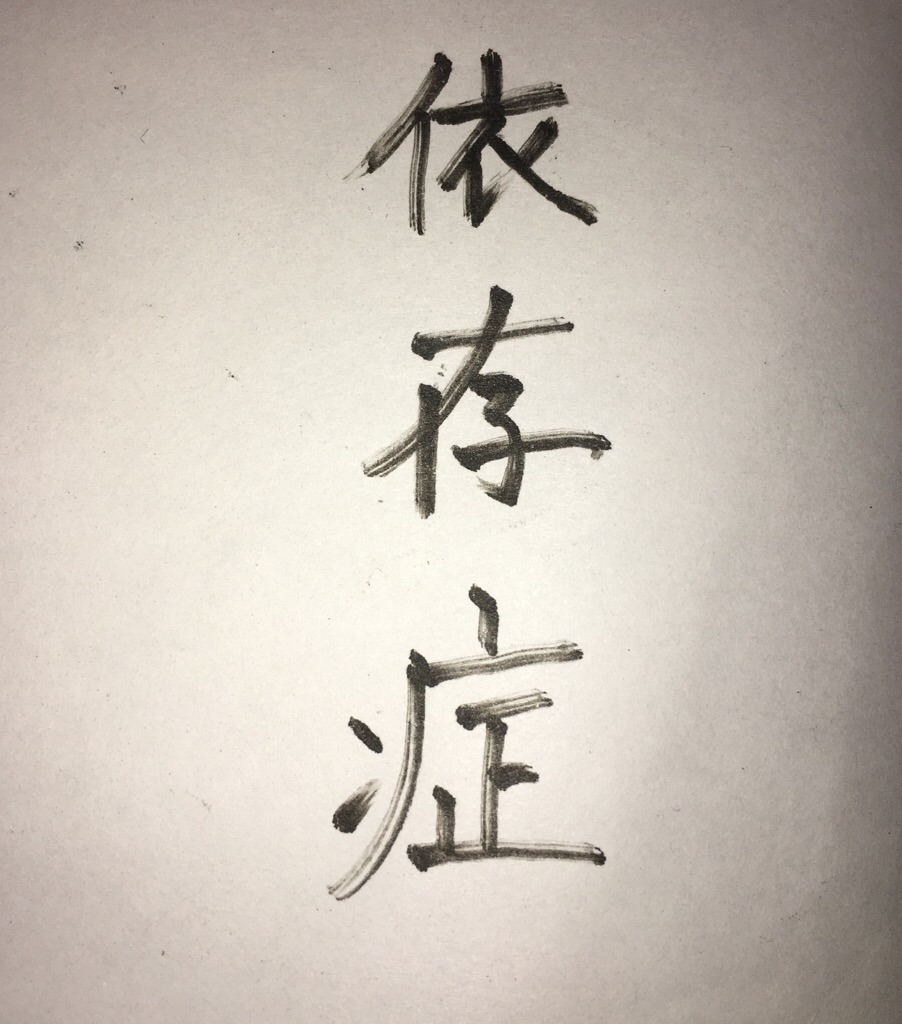 依存症